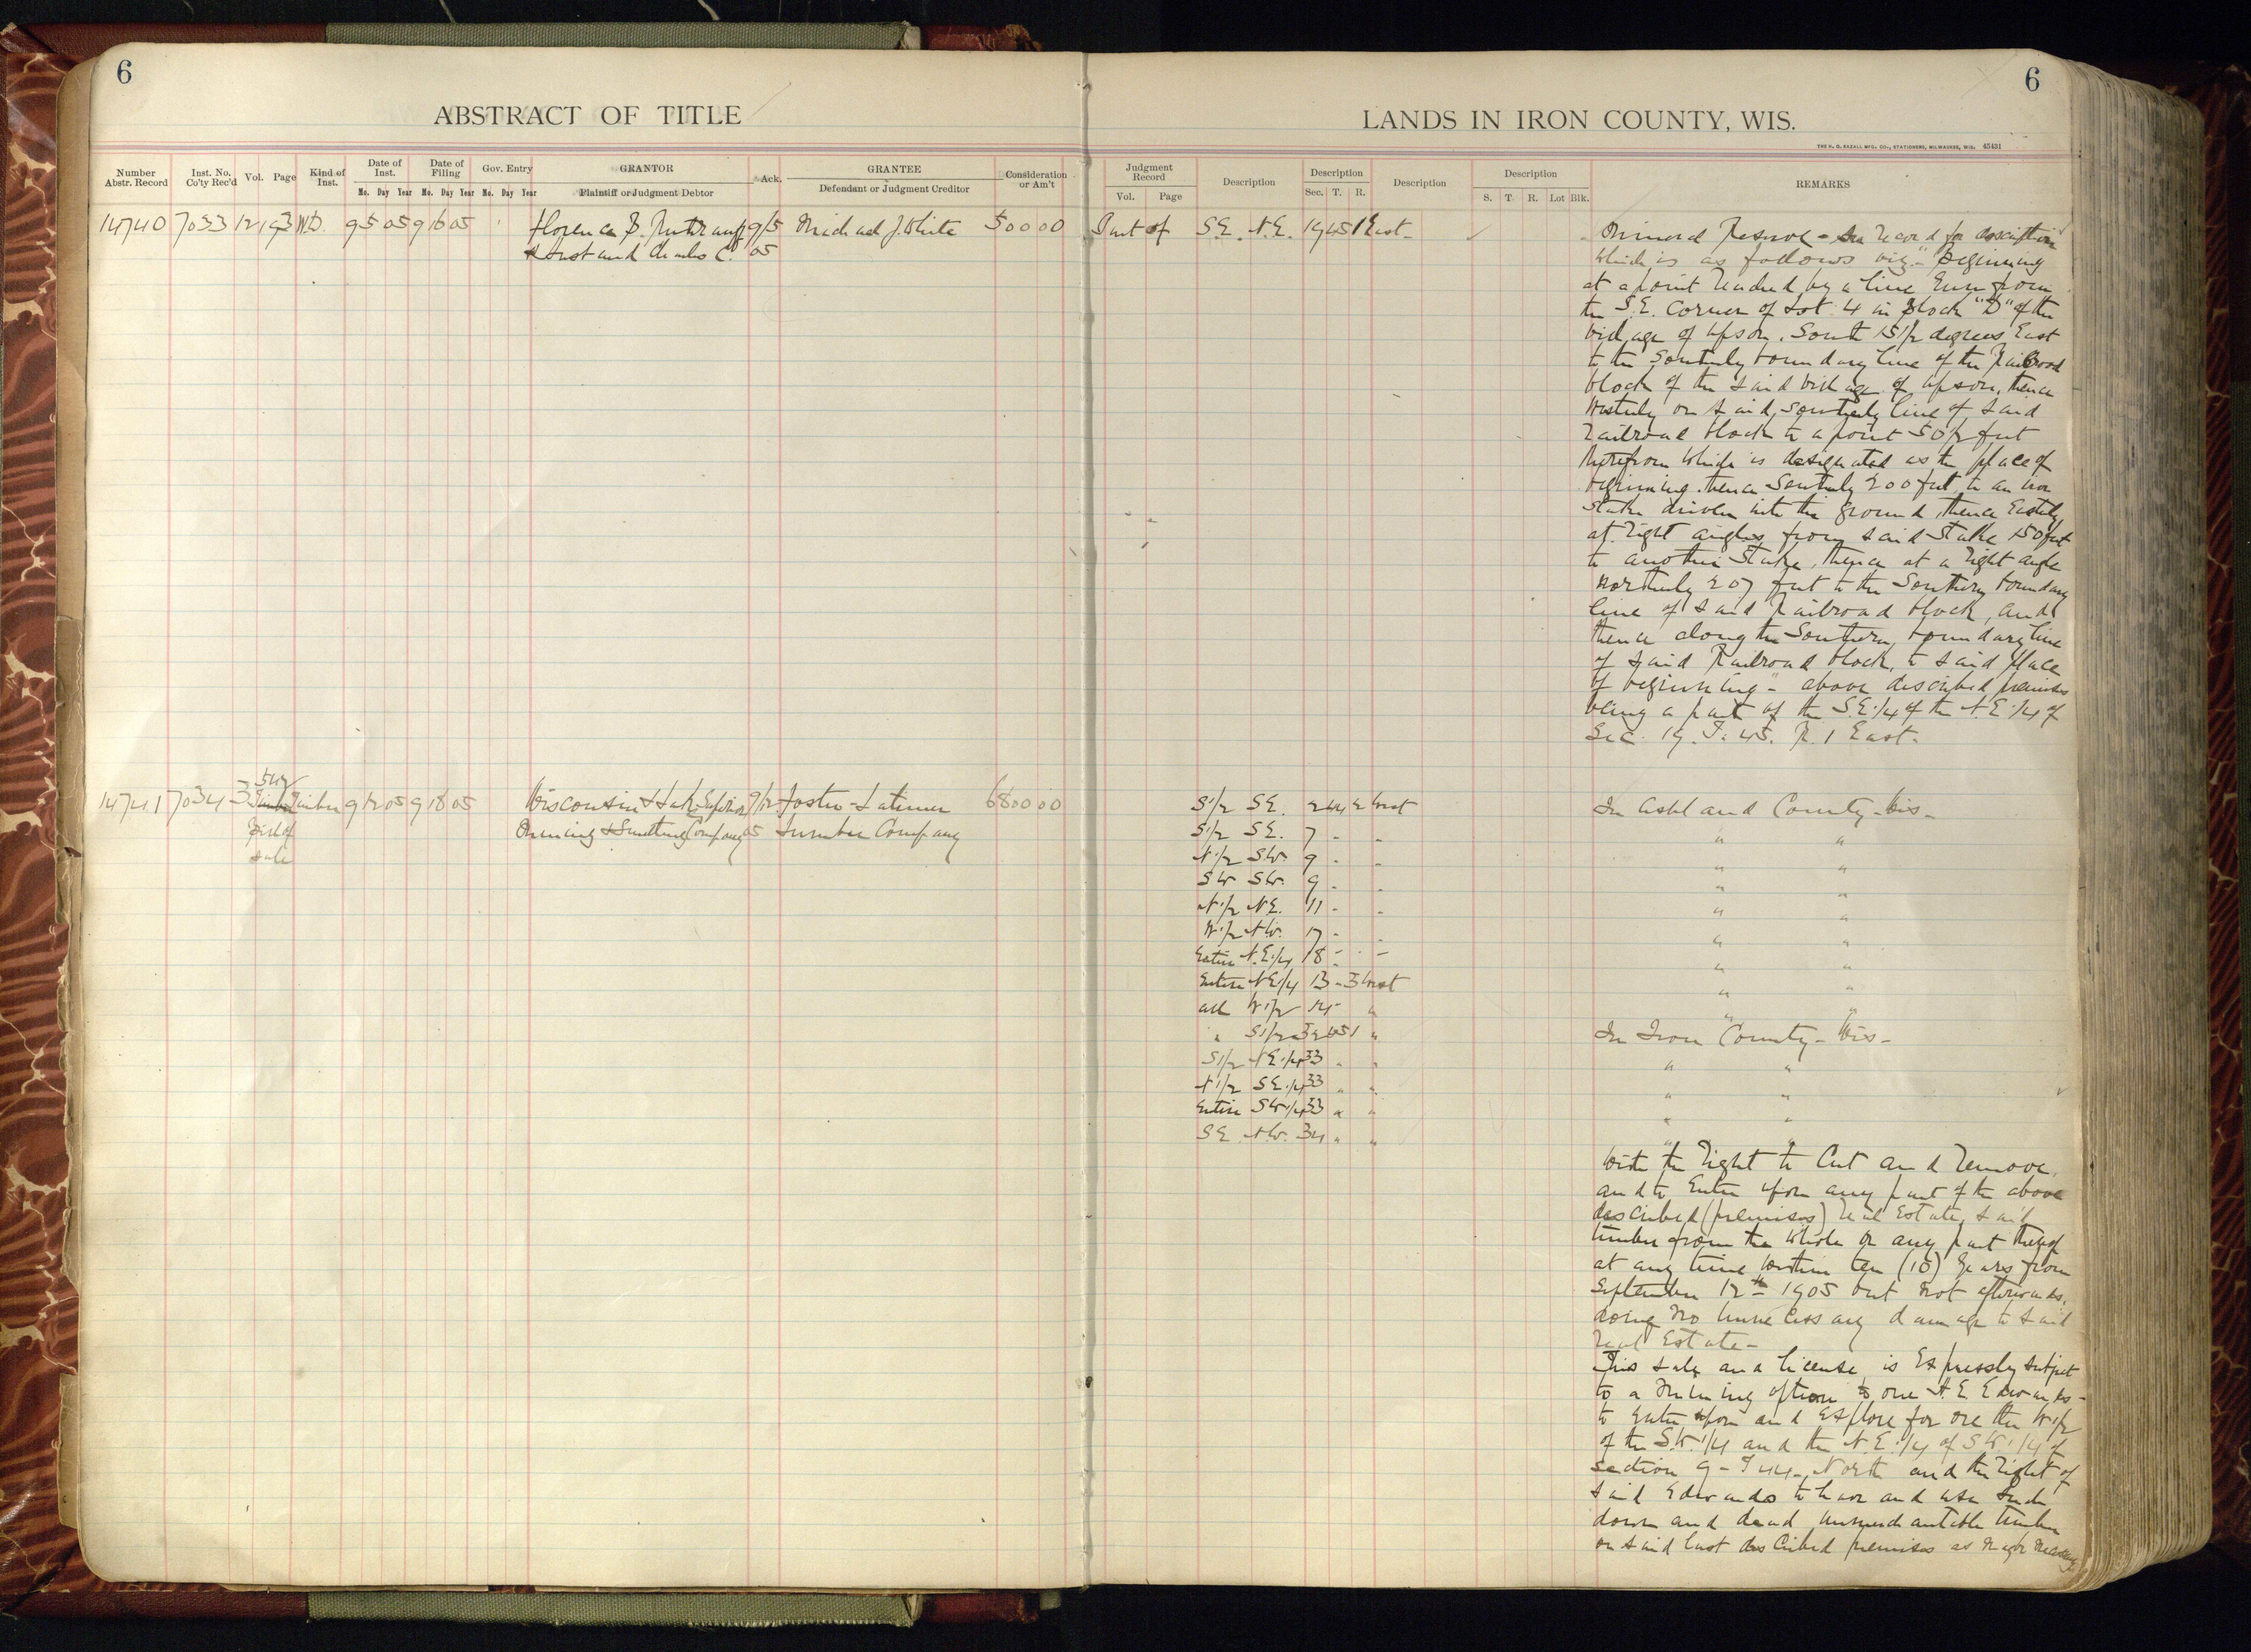 6
ABSTRACT OF TITLE
Number Abstr. Record
Inst. No. Co'ty Rec'd
Vol.
Page
Kind of Inst.
Date of Inst.
Mo. Day Year
Date of Filing
Mo. Day Year
Gov. Entry
Mo. Day Year
GRANTOR
Plaintiff or Judgment Debtor
Ack.
GRANTEE
Defendant or Judgment Creditor
Consideration or Am't
14740 7033 12 193 W.D. 9 5 05 9 16 05 Florence B. 9/5 Michael J. White 500 00
& Husband Charles C. 05
517
14741 7034 3 Timber Timber 9 12 05 9 18 05 Wisconsin & Lake Superior 9/12 Foster-Latimer 6800 00
Bill of Mining & Smelting Company 05 Lumber Company
sale
6
LANDS IN IRON COUNTY, WIS.
THE H. G. RAZALL MFG. CO., STATIONERS, MILWAUKEE, WIS. 45431
Judgment Record
Vol. Page
Description
Description
Sec. T. R.
Description
Description
S. T. R. Lot Blk.
REMARKS
Part of S.E. N.E. 19 45 1 East
Mineral Reserve - See record for description
which is as follows viz - "Beginning
at a point reached by a line run from
the S.E. corner of Lot 4 in Block "D" of the
village of Upson, South 15 1/2 degrees East
to the Southerly boundary line of the Railroad
block of the said village of Upson, thence
Westerly on said Southerly line of said
railroad block to a point 50 1/2 feet
therefrom which is designated as the place of
beginning, thence Southerly 200 feet to an iron
stake driven into the ground, thence Easterly
at right angles from said stake 150 feet
to another stake, thence at a right angle
northerly 207 feet to the Southern boundary
line of said Railroad block, and
thence along the Southern boundary line
of said Railroad block, to said place
of beginning" - above described premises
being a part of the S.E. 1/4 of the N.E. 1/4 of
Sec. 19. T. 45. R. 1 East.
S 1/2 SE. 2 44 2 West In Ashland County - Wis -
S 1/2 SE. 7 - - " "
N 1/2 SW. 9 - - " "
SW SW. 9 - - " "
N 1/2 NE. 11 - - " "
W 1/2 NW. 17 - - " "
Entire N.E. 1/4 18 - - " "
Entire NE 1/4 13 - 3 West " "
all W 1/2 14 - " " "
" S 1/2 32 45 1 " In Iron County - Wis -
S 1/2 NE 1/4 33 - " " "
N 1/2 SE 1/4 33 " " " "
Entire SW 1/4 33 " " " "
SE NW. 34 " " " "
With the right to cut and remove,
and to enter upon any part of the above
described (premises) real Estate, said
timber from the whole or any part thereof
at any time within ten (10) years from
September 12th 1905 but not afterwards,
doing no unnecessary damage to said
real Estate -
This sale and license is Expressly subject
to a mining option to one H. E. Edwards -
to enter upon and Explore for ore the W 1/2
of the S.W. 1/4 and the N.E. 1/4 of SW 1/4 of
section 9 - T 44 - North and the right of
said Edwards to have and use such
down and dead unmerchantable timber
on said last described premises as may be necessary